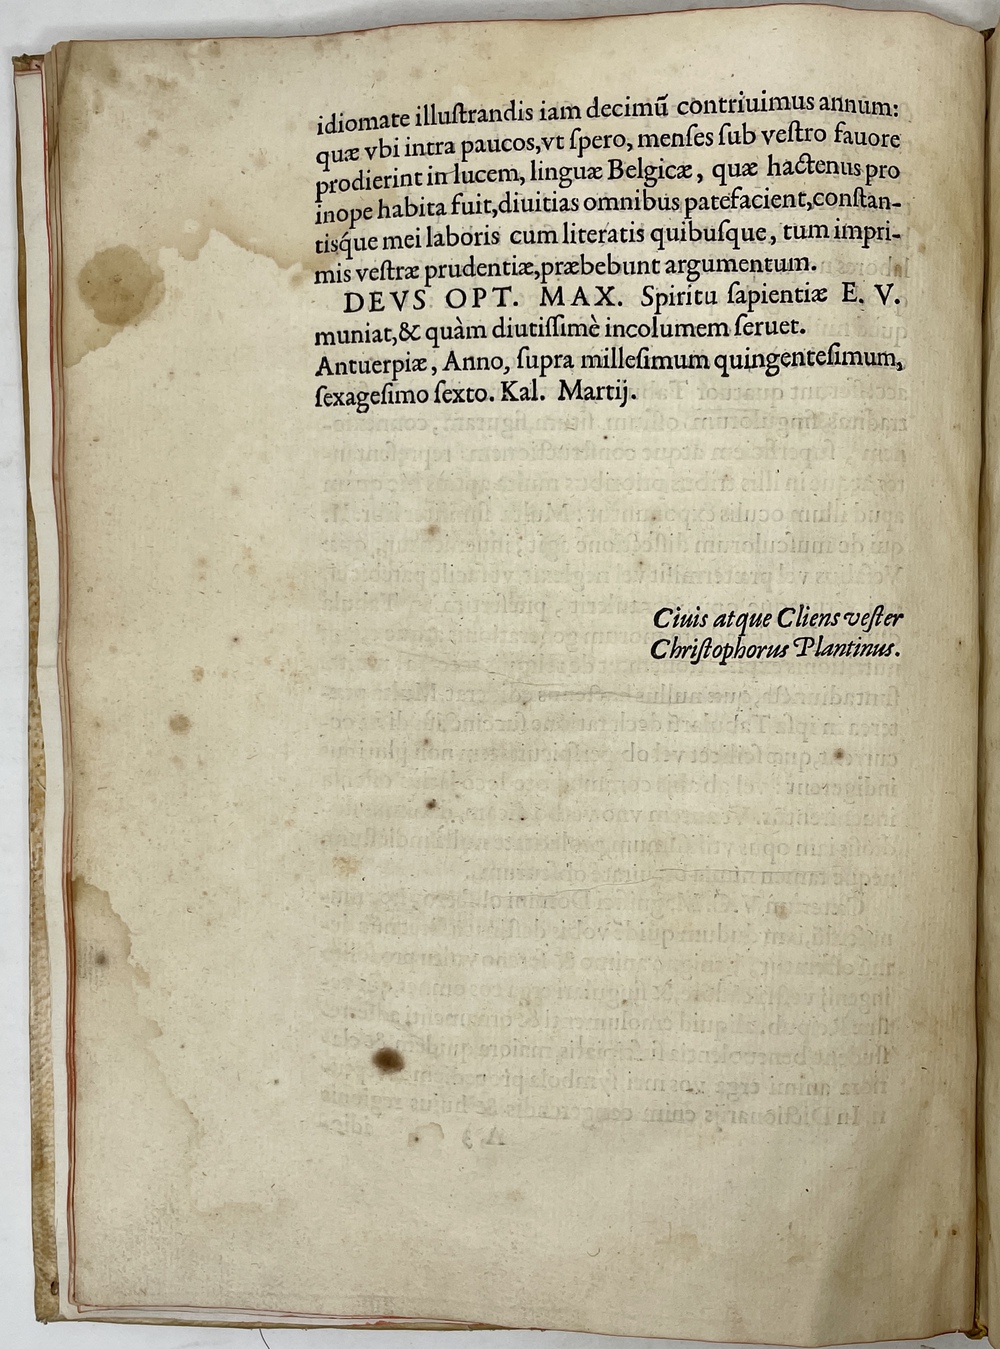 idiomate illuſtrandis iam decimũ contriuimus annum:
quæ vbi intra paucos,vt ſpero, menſes ſub veſtro fauore
prodierint in lucem, linguæ Belgicæ, quæ hactenus pro
inope habita fuit,diuitias omnibus patefacient,conſtan-
tisq́ue mei laboris cum literatis quibuſque, tum impri-
mis veſtræ prudentiæ,præbebunt argumentum.
DEVS OPT. MAX. Spiritu ſapientiæ E. V.
muniat,& quàm diutiſſimè incolumem ſeruet.
Antuerpiæ, Anno, ſupra milleſimum quingenteſimum,
ſexageſimo ſexto. Kal. Martij.
Ciuis atque Cliens veſter
Chriſtophorus Plantinus.